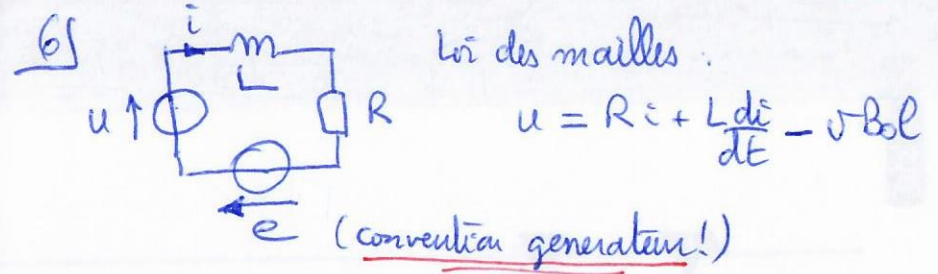 6)
i
L
u
R
e (convention generateur!)
Loi des mailles :
u = Ri + L di/dt - vB₀l